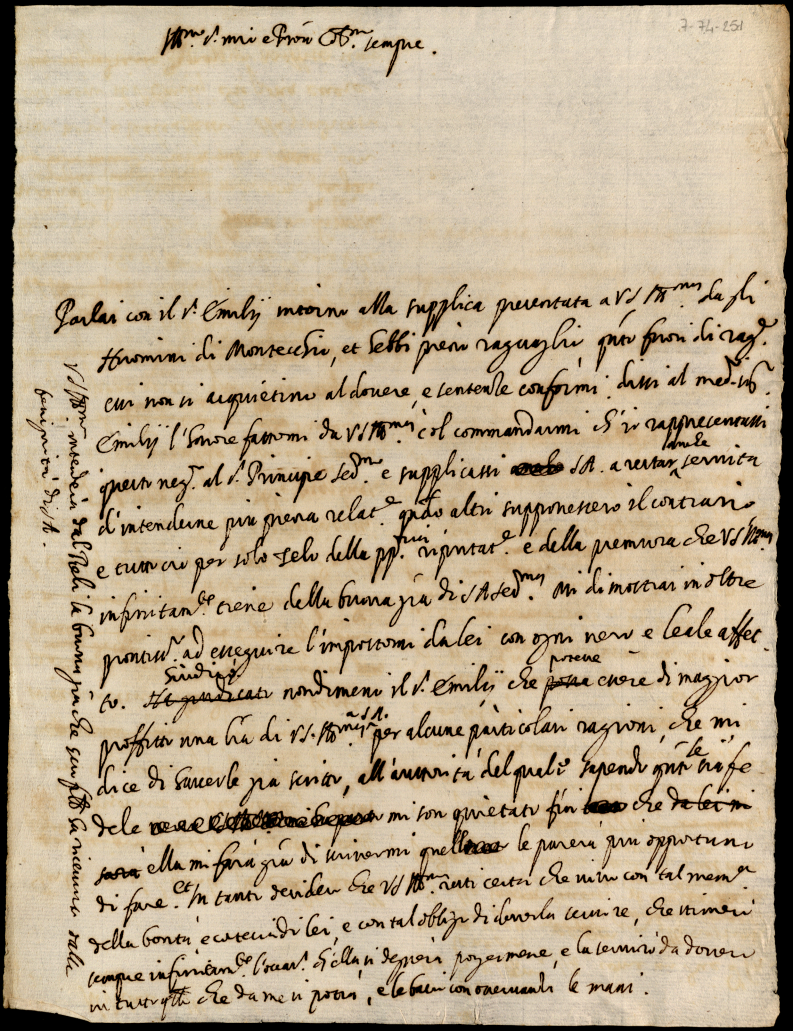 7-74-251
Ill.mo S.r mio e Pron Oss.mo sempre.
Parlai con il S.r Emilij intorno alla supplica presentata a VS Ill.ma da gli
Huomini di Montecchio, et hebbi pieno raguaglio, q.to fuori di rag.e
essi non si acquietino al dovere, e sentenze conformi. dissi al med.mo S.r
Emilij l'honore fattomi da VS Ill.ma col commandarmi ch'io rappresentassi
questo neg.o al S.r Principe Ser.mo e supplicassi SA. a restar servita
anche
d'intenderne più piena relat.e q.do altri supponessero il contrario
e tutto ciò per solo zelo della pp.a riputat.e e della premura che VS Ill.ma
infinitam.te tiene della buona gra di SA Ser.ma Mi dimostrai in oltre
prontiss.o ad esseguire l'impostomi da lei con ogni vero e leale affet-
to. Giudicò nondimeno il S.r Emilij che potesse essere di maggior
proffitto una lra di VS. Ill.ma a SA. per alcune particolari ragioni, che mi
dice di haverle già scritto, all'autorità del quale sapendo q.to le sia fe
dele mi son quietato fin che da lei mi
sarà ella mi farà gra di scrivermi quello le parerà più opportuno
di fare. Et In tanto desidero che VS Ill.ma resti certa che vivo con tal mem.a
della bontà e cortesia di lei, e con tal obligo di doverla servire, che stimerò
sempre infinitam.te l'occas.e ch'ella si degnerà porgermene, e la servirò da dovero
in tutto q.llo che da me si potrà, e le bacio con riverenza le mani.
VS Ill.ma intenderà dal Reli la buona gra che scrisse la ricevuta dalla
benignità di SA.